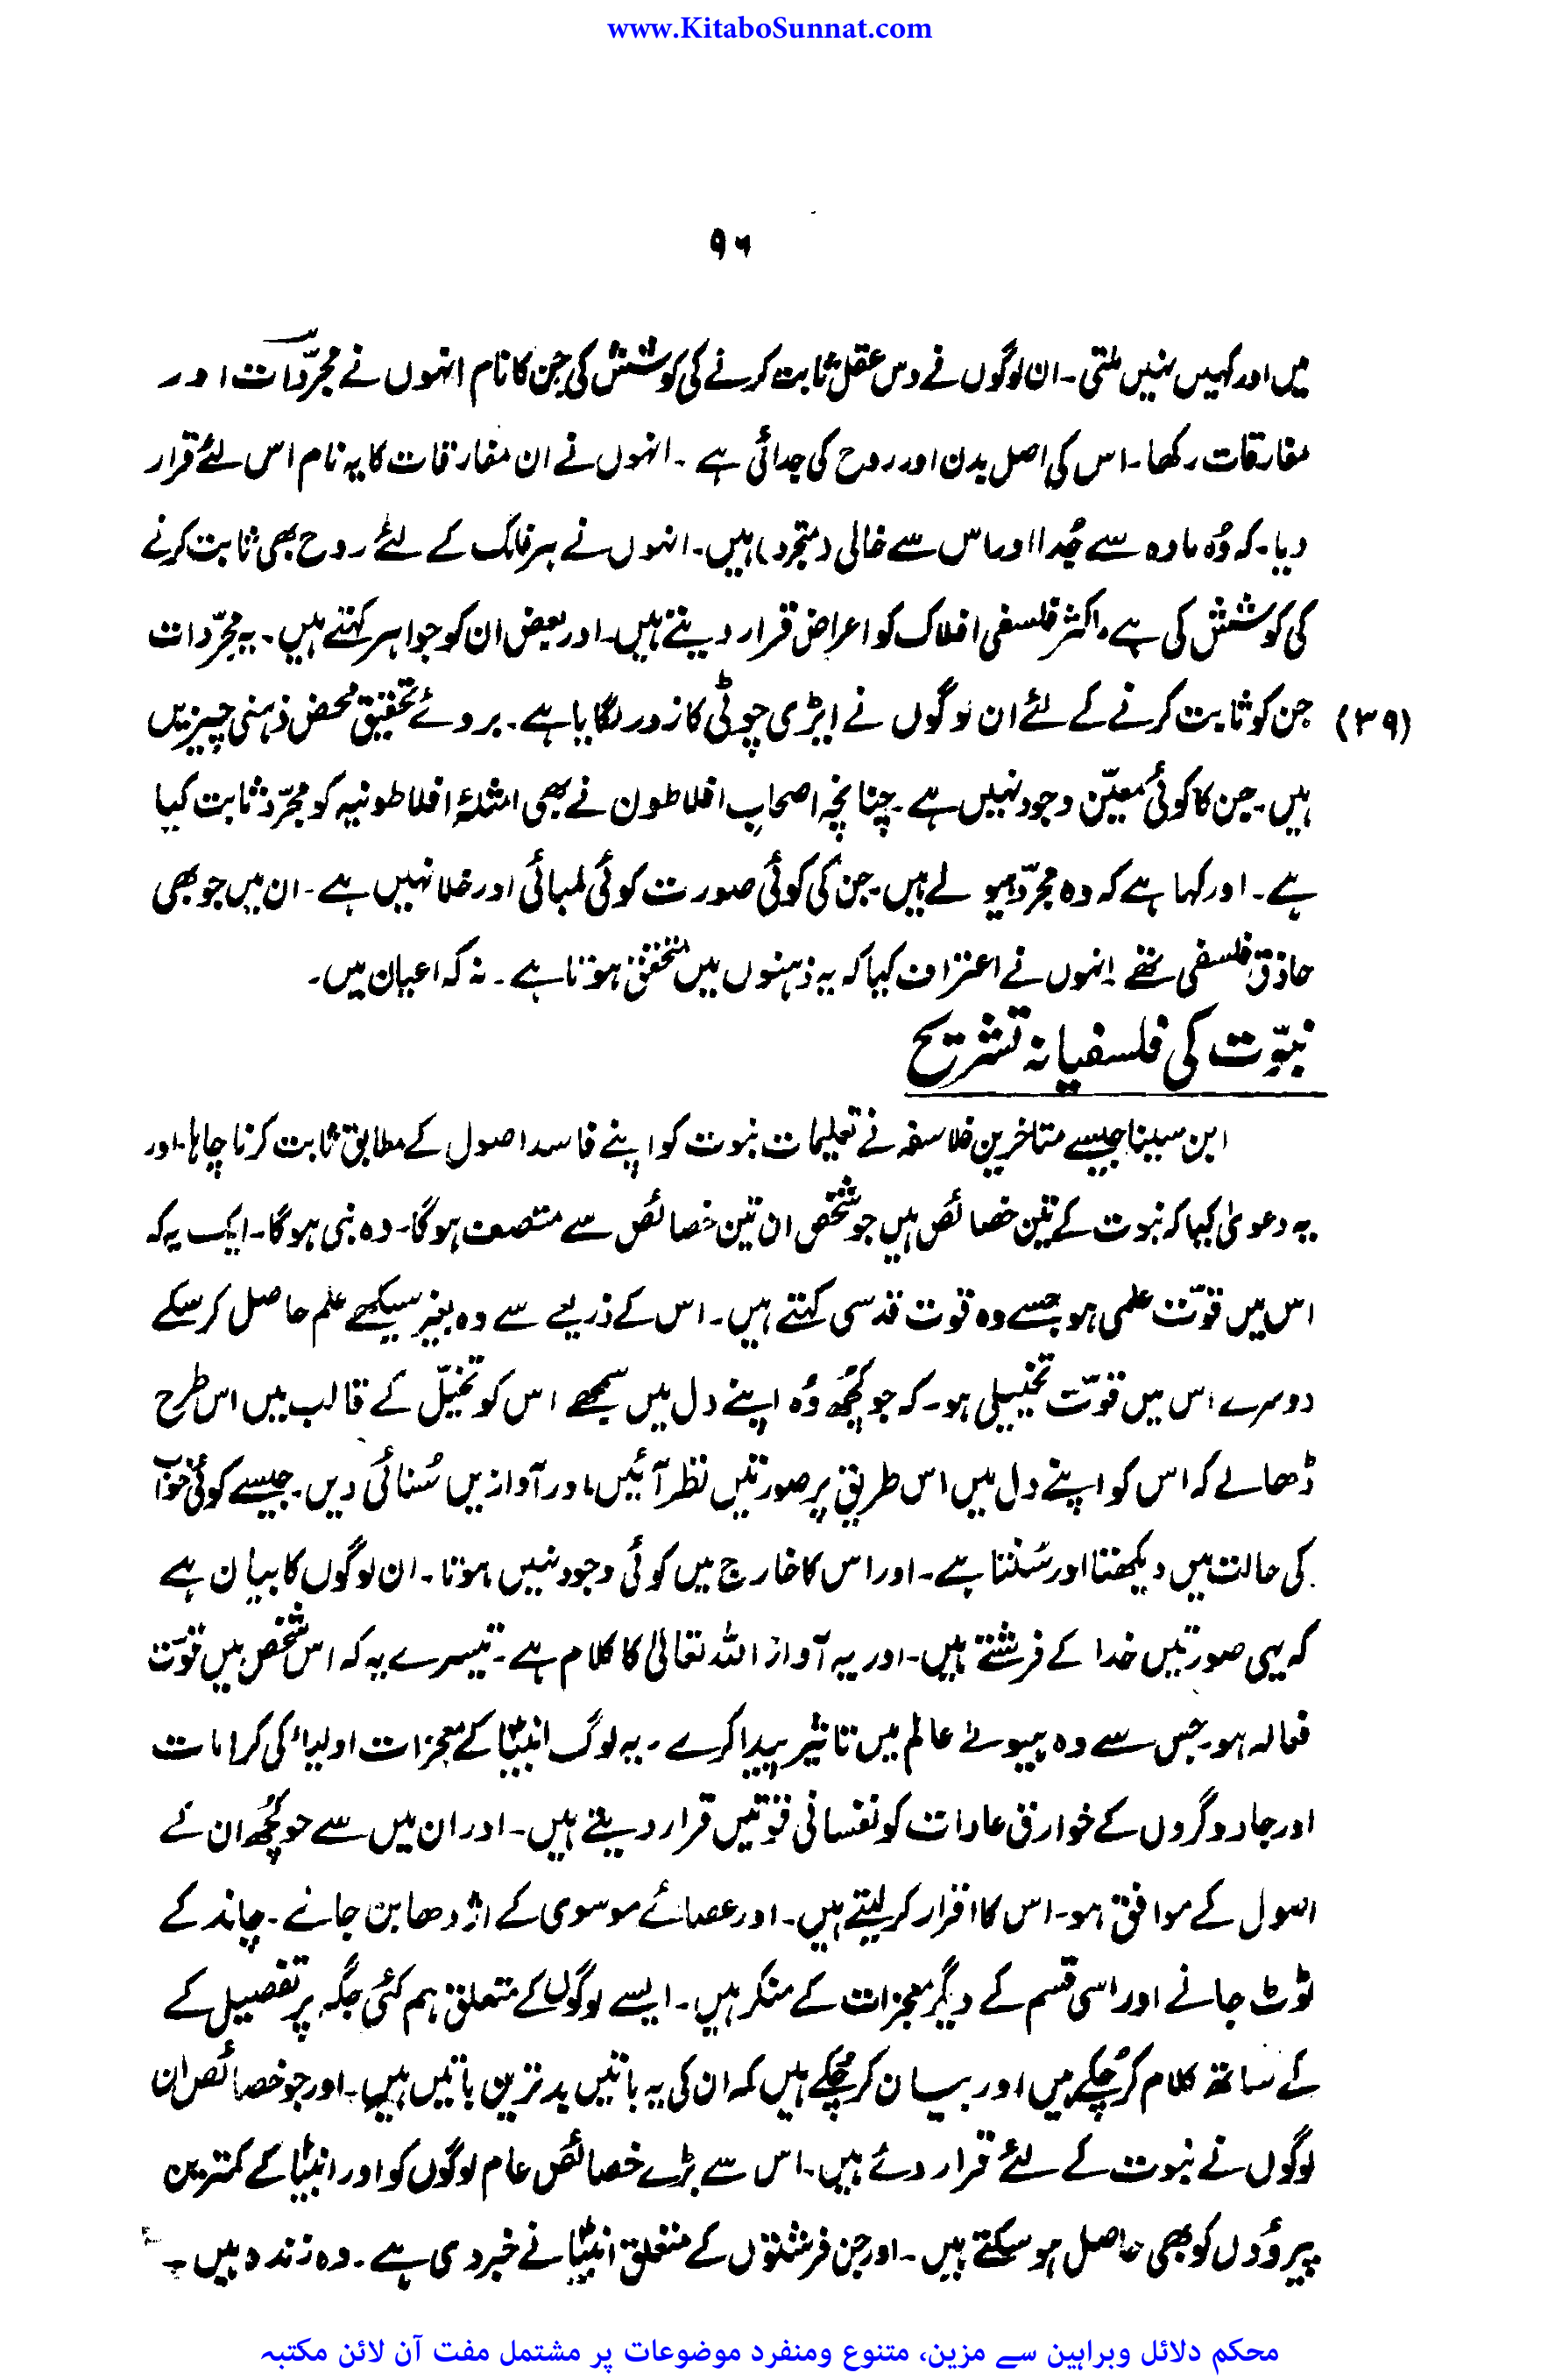 www.KitaboSunnat.com
۹۶
میں اور کہیں نہیں ملتی۔ ان لوگوں نے دس عقل ثابت کرنے کی کوشش کی جن کا نام انہوں نے مجرّدات اور
مفارقات رکھا۔ اس کی اصل بدن اور روح کی جدائی ہے۔ انہوں نے ان مفارقات کا یہ نام اس لئے قرار
دیا۔ کہ وُہ مادہ سے جُدا اور اس سے خالی (متجرد) ہیں۔ انہوں نے ہر فلک کے لئے روح بھی ثابت کرنے
کی کوشش کی ہے۔ اکثر فلسفی افلاک کو اعراض قرار دیتے ہیں۔ اور بعض ان کو جواہر کہتے ہیں۔ یہ مجرّدات
(۳۹) جن کو ثابت کرنے کے لئے ان لوگوں نے ایڑی چوٹی کا زور لگایا ہے۔ بروئے تحقیق محض ذہنی چیزیں
ہیں۔ جن کا کوئی معیّن وجود نہیں ہے۔ چنانچہ اصحابِ افلاطون نے بھی امثلۂ افلاطونیہ کو مجرّد ثابت کیا
ہے۔ اور کہا ہے کہ وہ مجرّد ہیولے ہیں۔ جن کی کوئی صورت کوئی لمبائی اور خلا نہیں ہے۔ ان میں جو بھی
حاذق فلسفی تھے انہوں نے اعتراف کیا کہ یہ ذہنوں میں متحقق ہوتا ہے۔ نہ کہ اعیان میں۔
نبوّت کی فلسفیانہ تشریح
ابن سینا جیسے متاخرین فلاسفہ نے تعلیمات نبوت کو اپنے فاسد اصول کے مطابق ثابت کرنا چاہا۔ اور
یہ دعویٰ کیا کہ نبوت کے تین خصائص ہیں جو شخص ان تین خصائص سے متصف ہوگا۔ وہ نبی ہوگا۔ ایک یہ کہ
اس میں قوّت علمی ہو جسے وہ قوت قدسی کہتے ہیں۔ اس کے ذریعے سے وہ بغیر سیکھے علم حاصل کر سکے
دوسرے اس میں قوّت تخییلی ہو۔ کہ جو کچھ وُہ اپنے دل میں سمجھے اس کو تخیّل کے قالب میں اس طرح
ڈھالے کہ اس کو اپنے دل میں اس طریق پر صورتیں نظر آئیں، اور آوازیں سُنائی دیں۔ جیسے کوئی خواب
کی حالت میں دیکھتا اور سُنتا ہے۔ اور اس کا خارج میں کوئی وجود نہیں ہوتا۔ ان لوگوں کا بیان ہے
کہ یہی صورتیں خدا کے فرشتے ہیں۔ اور یہ آواز اللہ تعالیٰ کا کلام ہے۔ تیسرے یہ کہ اس شخص میں قوّت
فعالہ ہو۔ جس سے وہ ہیولےٰ عالم میں تاثیر پیدا کرے۔ یہ لوگ انبیاؑ کے معجزات اولیاء کی کرامات
اور جادوگروں کے خوارق عادات کو نفسانی قوّتیں قرار دیتے ہیں۔ اور ان میں سے جو کچھ ان کے
اصول کے موافق ہو۔ اس کا اقرار کر لیتے ہیں۔ اور عصائے موسوی کے اژدھا بن جانے۔ چاند کے
ٹوٹ جانے اور اسی قسم کے دیگر معجزات کے منکر ہیں۔ ایسے لوگوں کے متعلق ہم کئی جگہ پر تفصیل کے
کے ساتھ کلام کر چُکے ہیں اور بیان کر چُکے ہیں کہ ان کی یہ باتیں بدترین باتیں ہیں۔ اور جو خصائص ان
لوگوں نے نبوت کے لئے قرار دئے ہیں۔ اس سے بڑے خصائص عام لوگوں کو اور انبیاؑ کے کمترین
پیروؤں کو بھی حاصل ہو سکتے ہیں۔ اور جن فرشتوں کے متعلق انبیاؑ نے خبر دی ہے۔ وہ زندہ ہیں۔
محکم دلائل وبراہین سے مزین، متنوع ومنفرد موضوعات پر مشتمل مفت آن لائن مکتبہ